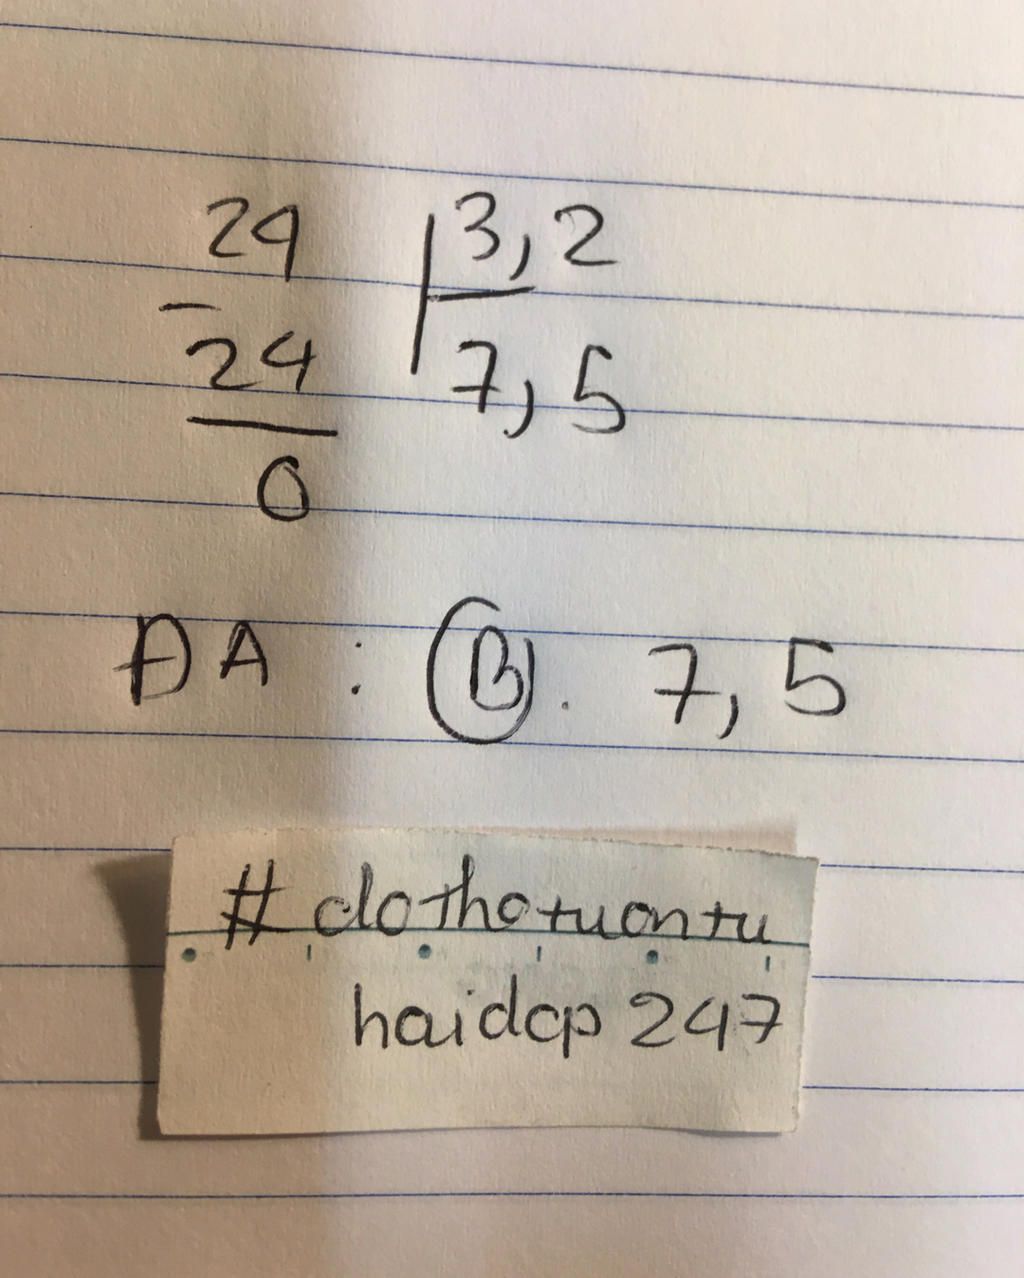 24 3,2
- 24 7,5
0
ĐA : B. 7,5
# dothotuontu
haidcp 247